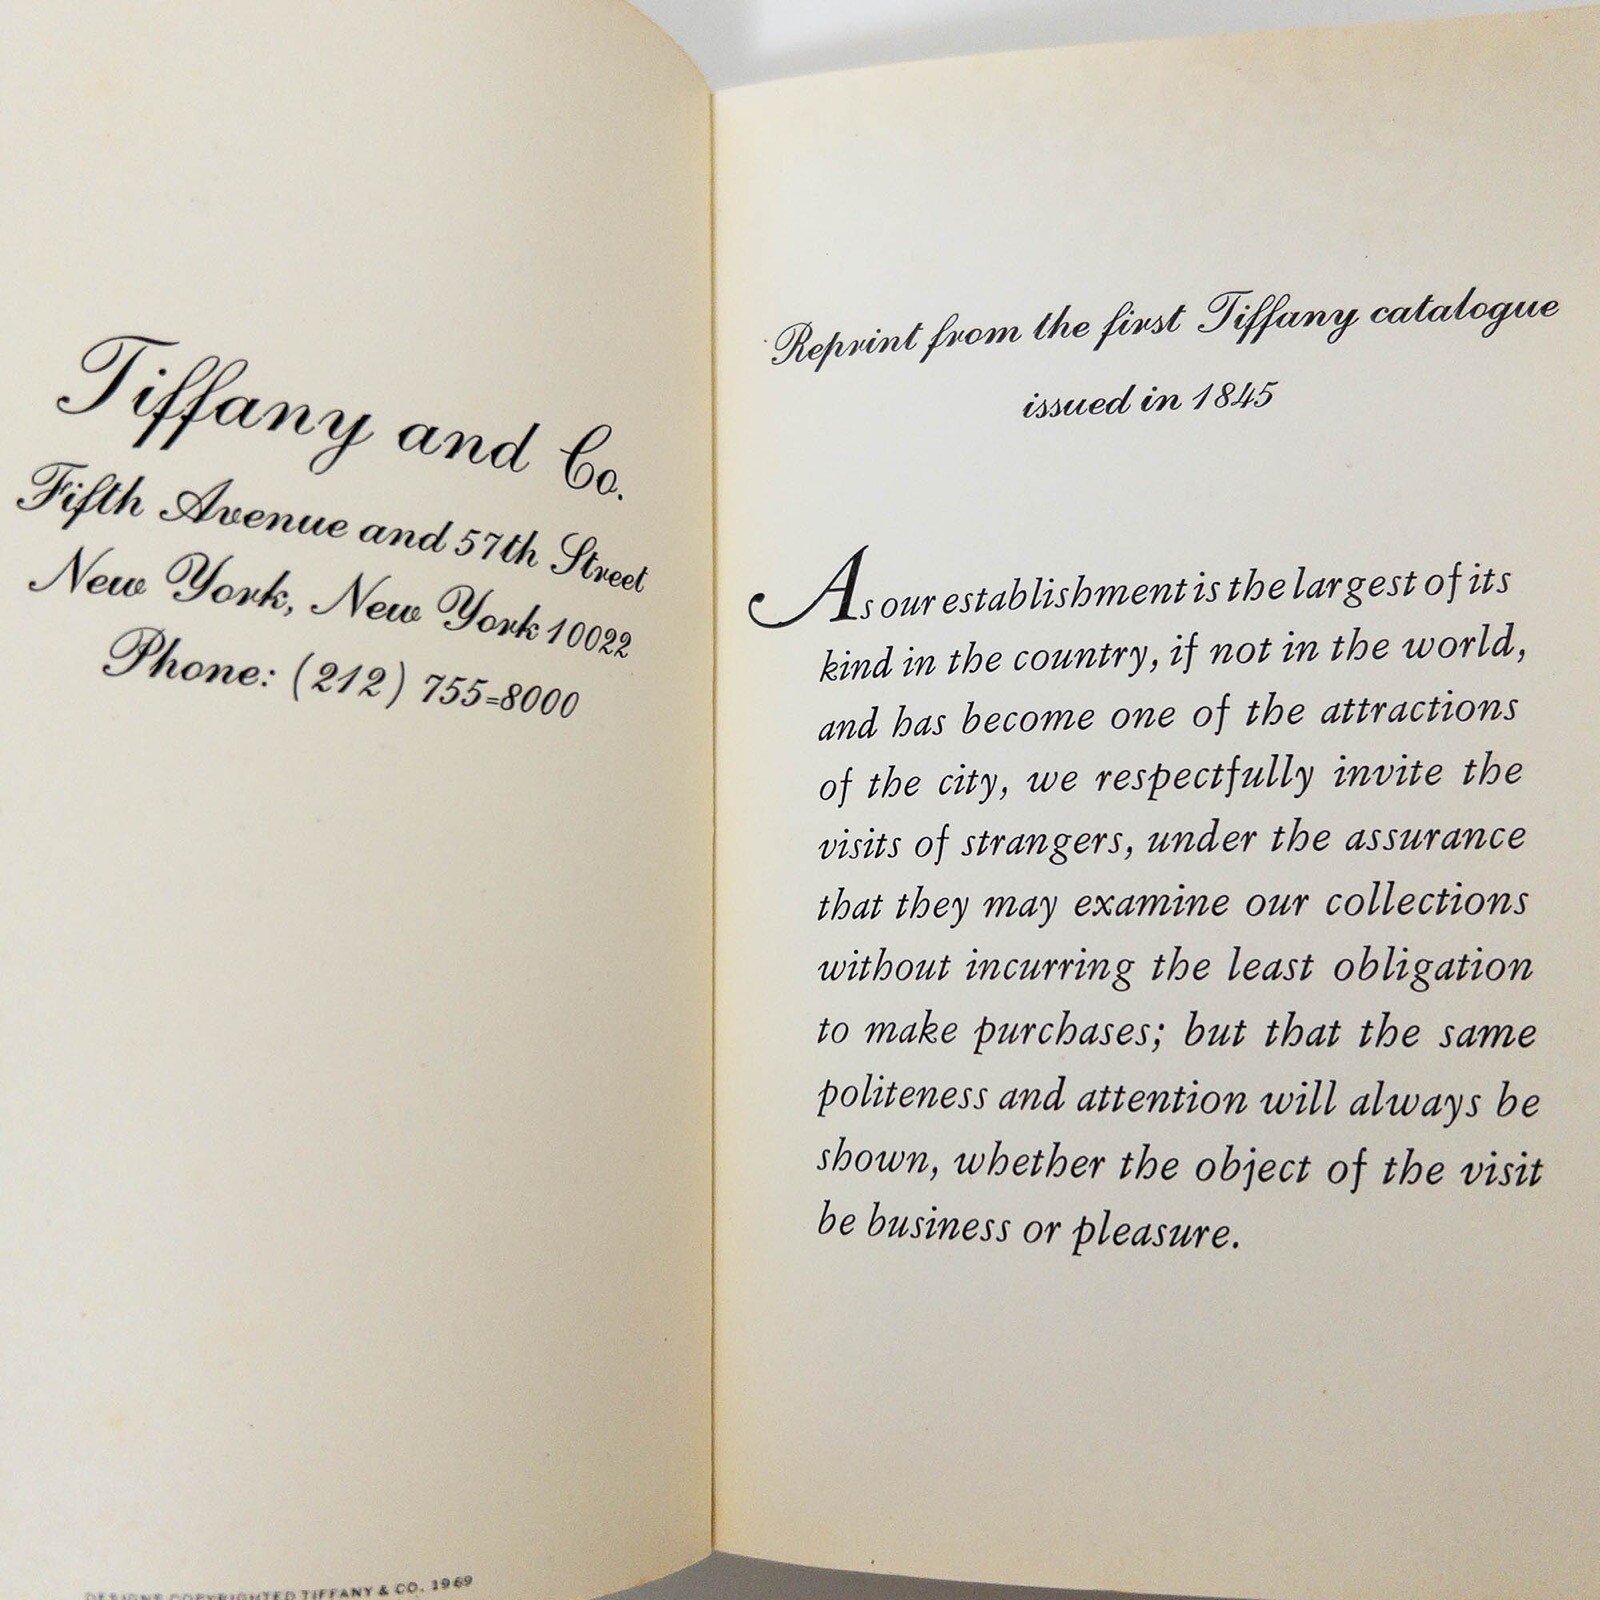 Tiffany and Co.
Fifth Avenue and 57th Street
New York, New York 10022
Phone: (212) 755=8000
DESIGNS COPYRIGHTED TIFFANY & CO. 1969
Reprint from the first Tiffany catalogue
issued in 1845
As our establishment is the largest of its
kind in the country, if not in the world,
and has become one of the attractions
of the city, we respectfully invite the
visits of strangers, under the assurance
that they may examine our collections
without incurring the least obligation
to make purchases; but that the same
politeness and attention will always be
shown, whether the object of the visit
be business or pleasure.